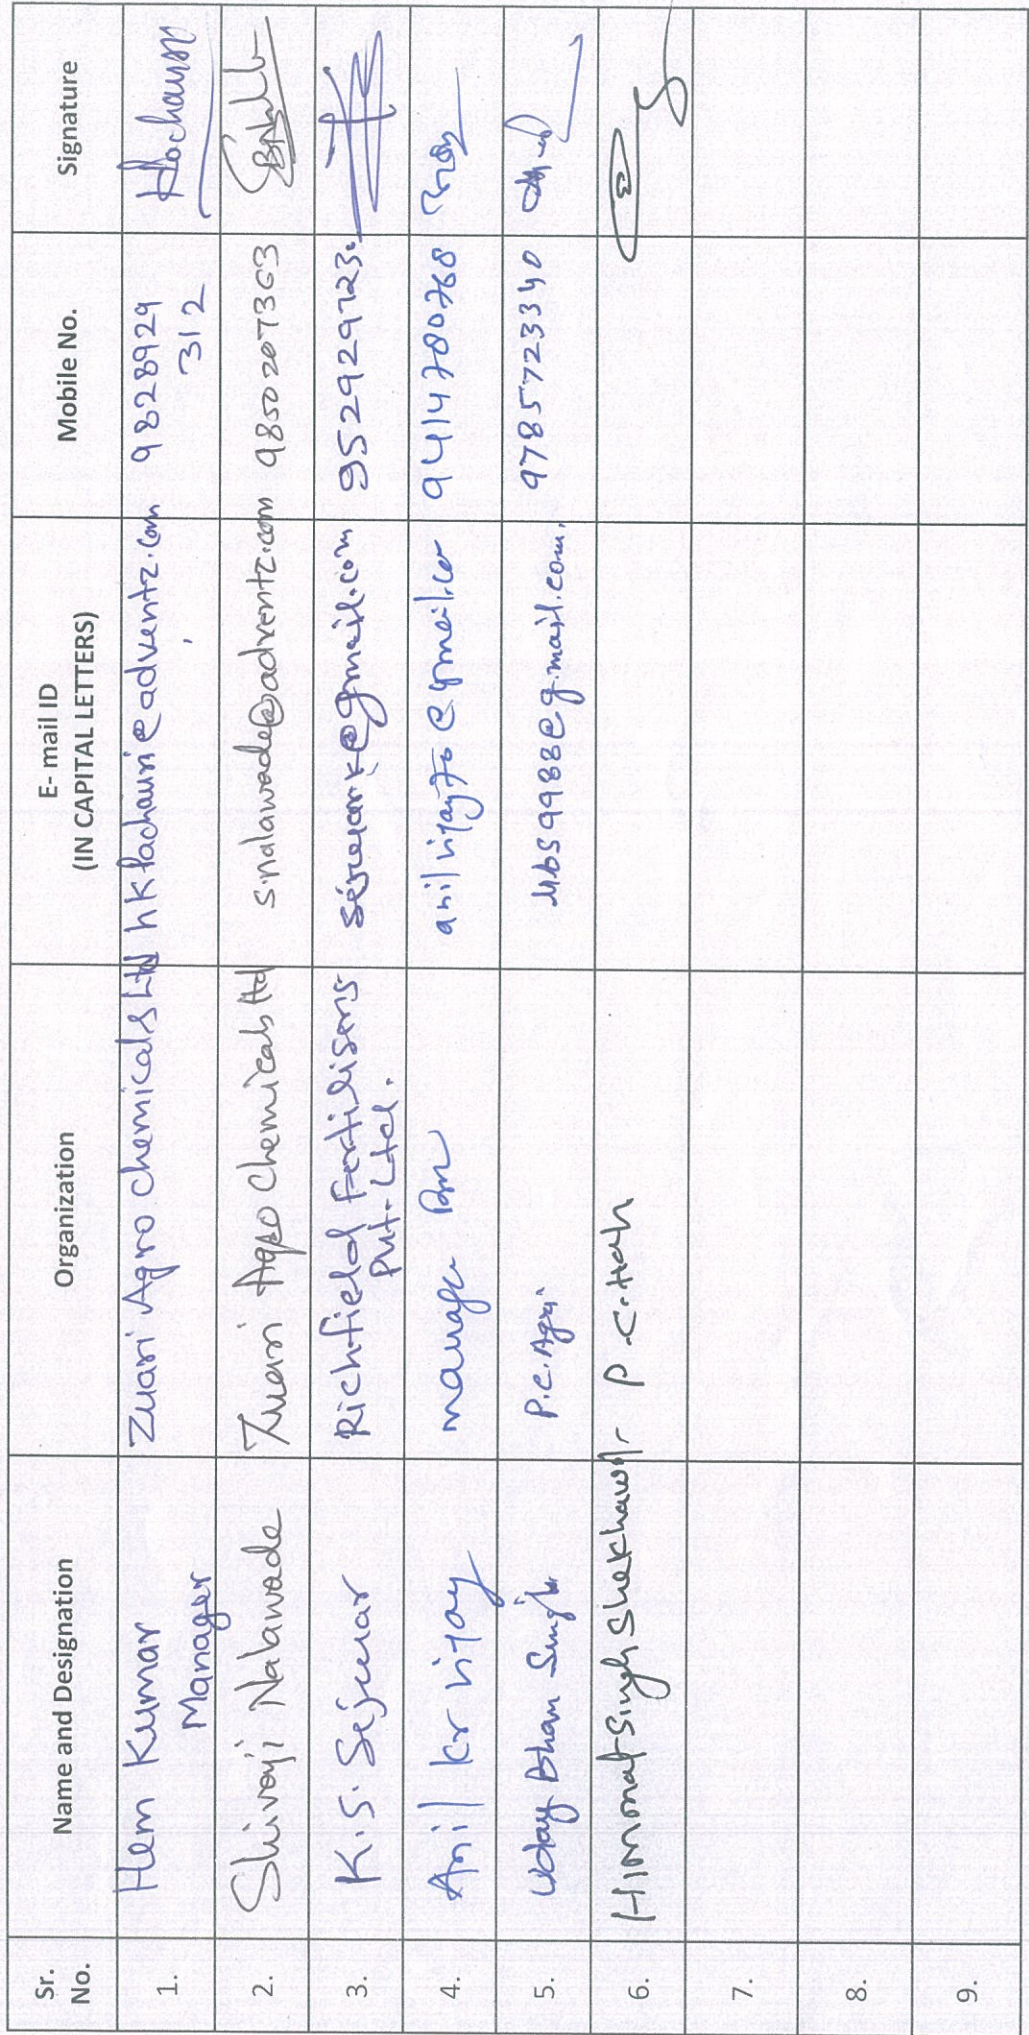 Sr. No. Name and Designation Organization E- mail ID (IN CAPITAL LETTERS) Mobile No. Signature
1. Hem Kumar Manager Zuari Agro chemicals Ltd hkkachauri@adventz.com 9828929 312
2. Shivaji Nalawade Zuari Agro Chemicals Ltd s.nalawade@adventz.com 9850207363
3. K.S. Sejwar Richfield Fertilisers Pvt. Ltd. 9529297123
4. Anil kr vijay manager 9414780768
5. Uday Bhan Singh P.C. Agri. ubs9988@g.mail.com. 9785723340
6. Himmat Singh Shekhawat
7.
8.
9.